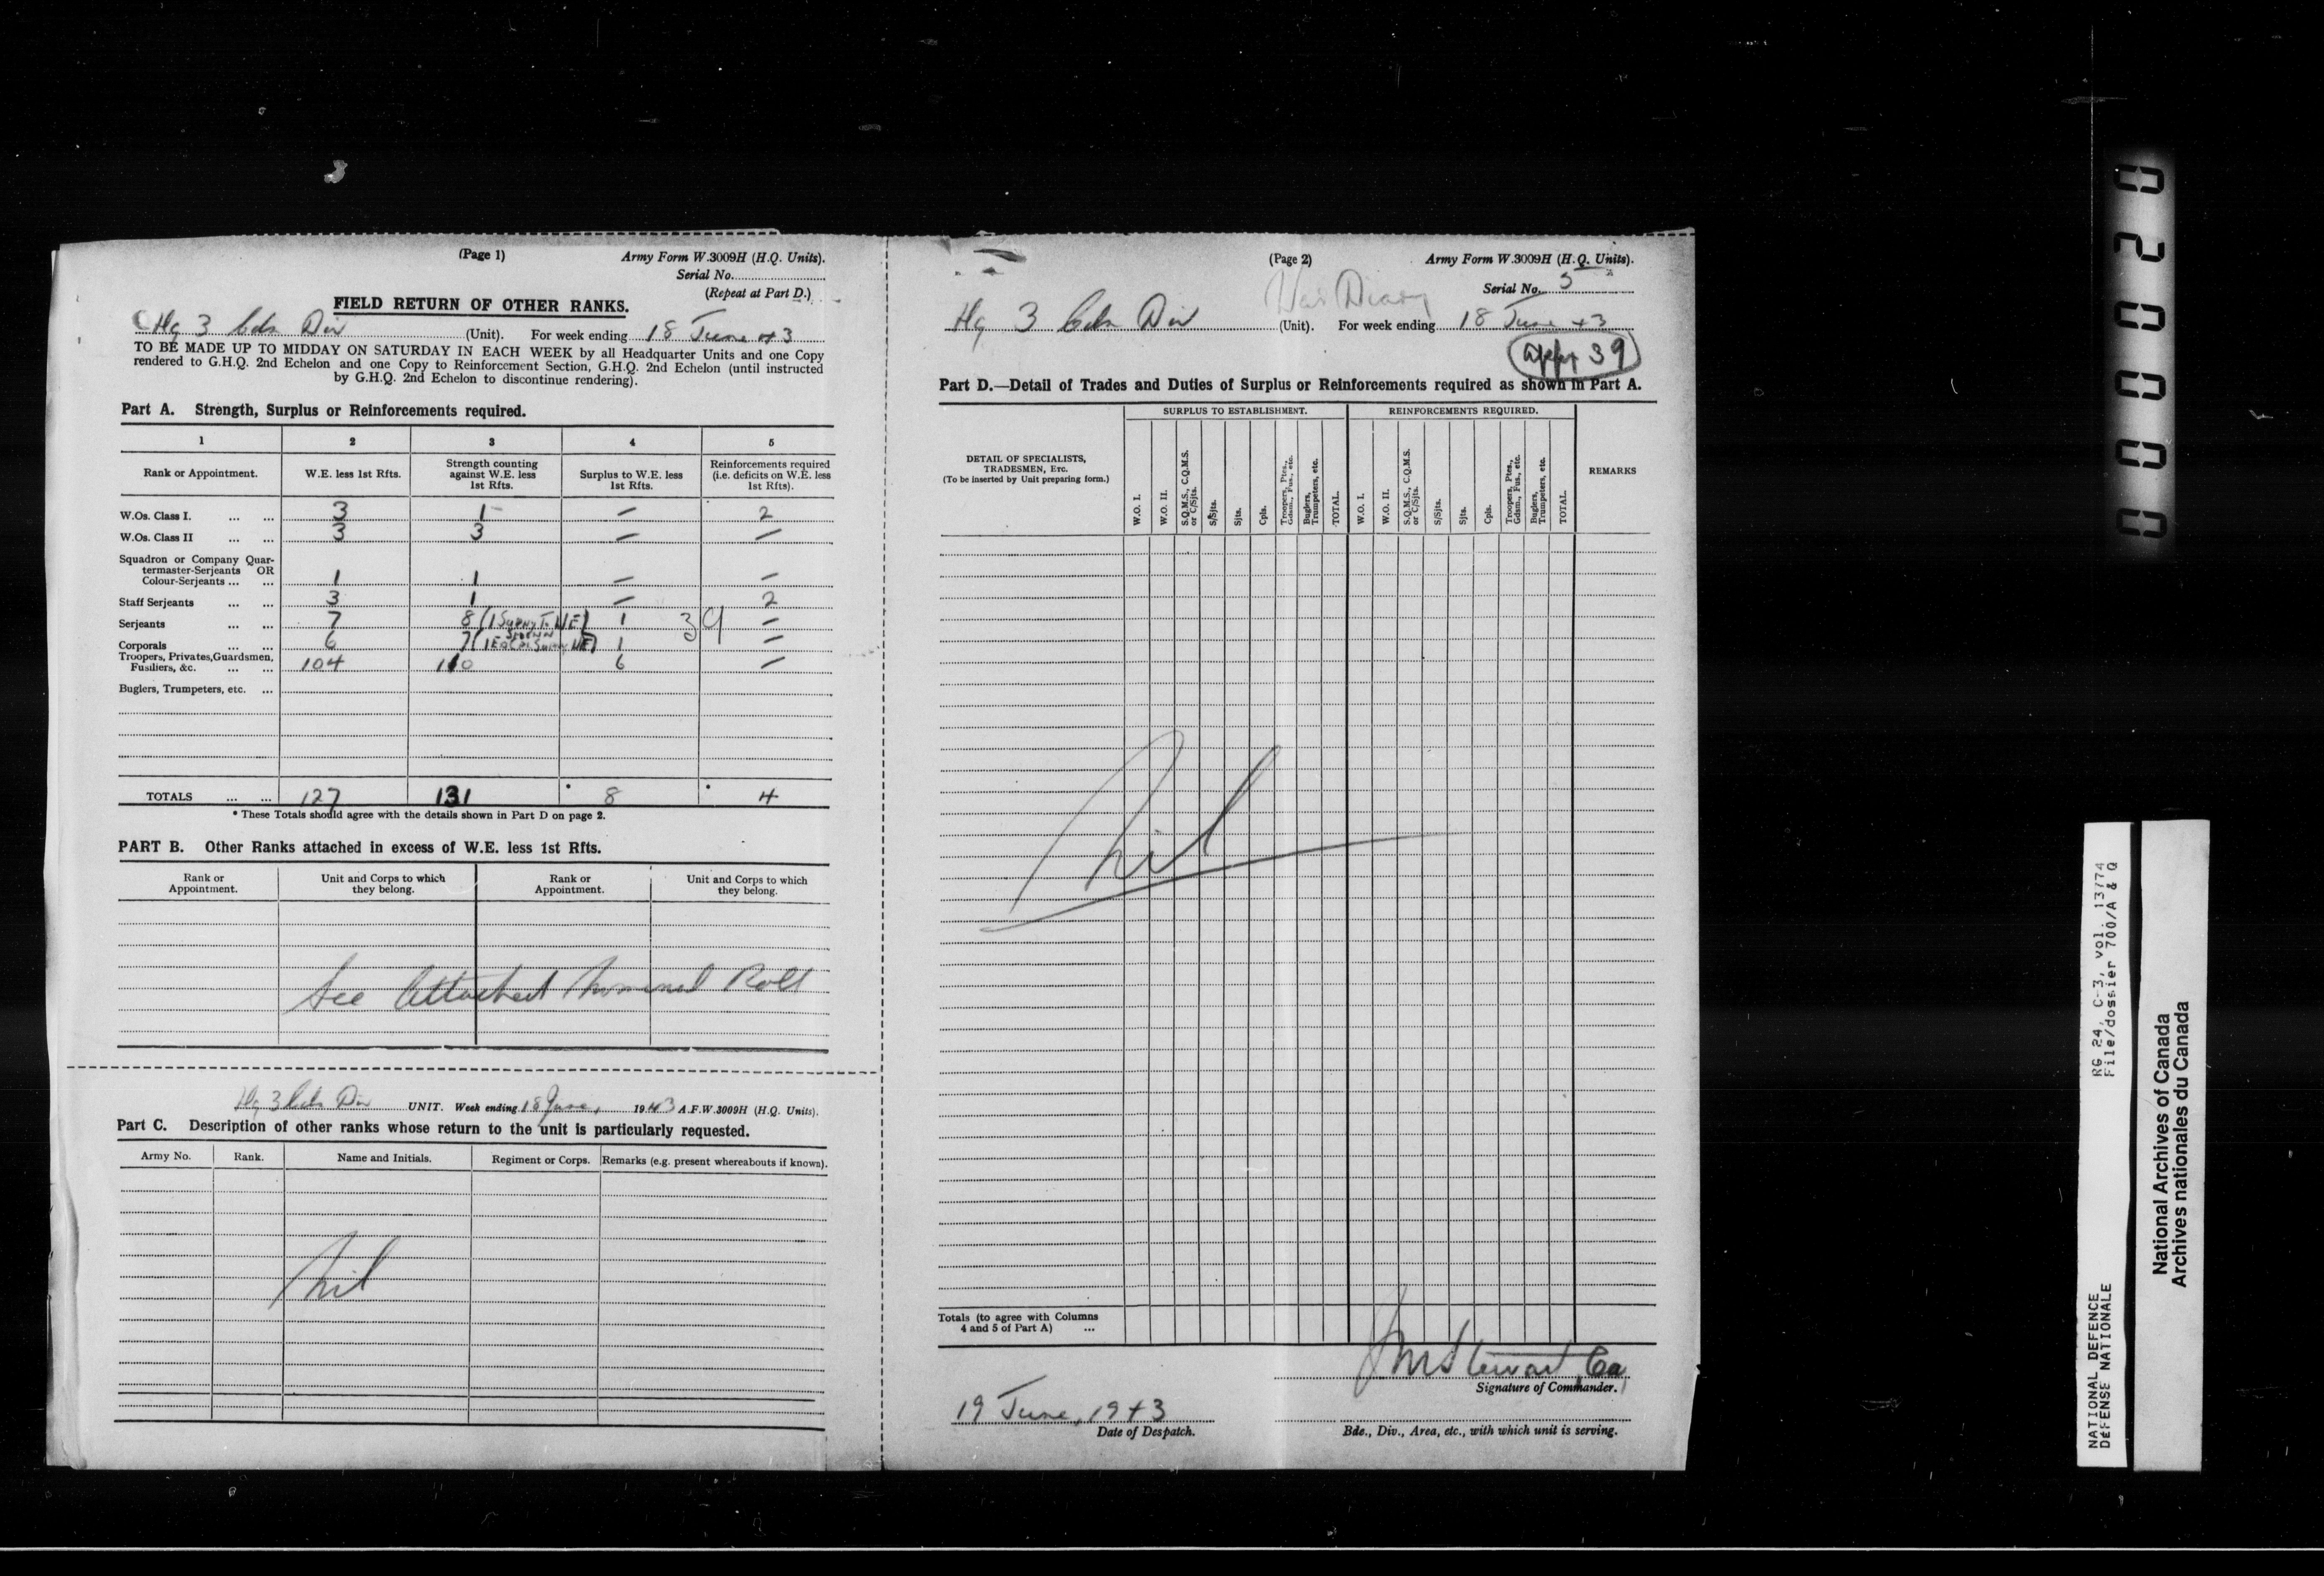 (Page 1)
Army Form W.3009H (H.Q. Units).
Serial No.
(Repeat at Part D.)
FIELD RETURN OF OTHER RANKS.
Hq 3 Cdn Div (Unit). For week ending 18 June 43
TO BE MADE UP TO MIDDAY ON SATURDAY IN EACH WEEK by all Headquarter Units and one Copy
rendered to G.H.Q. 2nd Echelon and one Copy to Reinforcement Section, G.H.Q. 2nd Echelon (until instructed
by G.H.Q. 2nd Echelon to discontinue rendering).
Part A. Strength, Surplus or Reinforcements required.
1 2 3 4 5
Rank or Appointment. W.E. less 1st Rfts. Strength counting against W.E. less 1st Rfts. Surplus to W.E. less 1st Rfts. Reinforcements required (i.e. deficits on W.E. less 1st Rfts).
W.Os. Class I. ... ... 3 1 — 2
W.Os. Class II ... ... 3 3 — —
Squadron or Company Quar-
termaster-Serjeants OR
Colour-Serjeants ... ... 1 1 — —
Staff Serjeants ... ... 3 1 — 2
Serjeants ... ... 7 8 1 —
39
Corporals ... ... 6 7 1 —
Troopers, Privates, Guardsmen,
Fusiliers, &c. ... ... 104 110 6 —
Buglers, Trumpeters, etc. ...
TOTALS ... ... 127 131 * 8 * 4
* These Totals should agree with the details shown in Part D on page 2.
PART B. Other Ranks attached in excess of W.E. less 1st Rfts.
Rank or Appointment. Unit and Corps to which they belong. Rank or Appointment. Unit and Corps to which they belong.
See Attached Nominal Roll
Hq 3 Cdn Div UNIT. Week ending 18 June, 1943 A.F.W.3009H (H.Q. Units).
Part C. Description of other ranks whose return to the unit is particularly requested.
Army No. Rank. Name and Initials. Regiment or Corps. Remarks (e.g. present whereabouts if known).
Nil
(Page 2)
Army Form W.3009H (H.Q. Units).
War Diary
Serial No. 5
Hq 3 Cdn Div (Unit). For week ending 18 June 43
appx 39
Part D.—Detail of Trades and Duties of Surplus or Reinforcements required as shown in Part A.
SURPLUS TO ESTABLISHMENT. REINFORCEMENTS REQUIRED.
DETAIL OF SPECIALISTS,
TRADESMEN, Etc.
(To be inserted by Unit preparing form.)
W.O. I.
W.O. II.
S.Q.M.S., C.Q.M.S. or C/Sjts.
S/Sjts.
Sjts.
Cpls.
Troopers, Ptes., Gdsm., Fus., etc.
Buglers, Trumpeters, etc.
TOTAL.
W.O. I.
W.O. II.
S.Q.M.S., C.Q.M.S. or C/Sjts.
S/Sjts.
Sjts.
Cpls.
Troopers, Ptes., Gdsm., Fus., etc.
Buglers, Trumpeters, etc.
TOTAL.
REMARKS
Nil
Totals (to agree with Columns
4 and 5 of Part A) ...
JM Stewart, Ca
Signature of Commander.
19 June, 1943
Date of Despatch.
Bde., Div., Area, etc., with which unit is serving.
000020
NATIONAL DEFENCE RG 24, C-3, vol. 13774
DÉFENSE NATIONALE File/dossier 700/A & Q
National Archives of Canada
Archives nationales du Canada